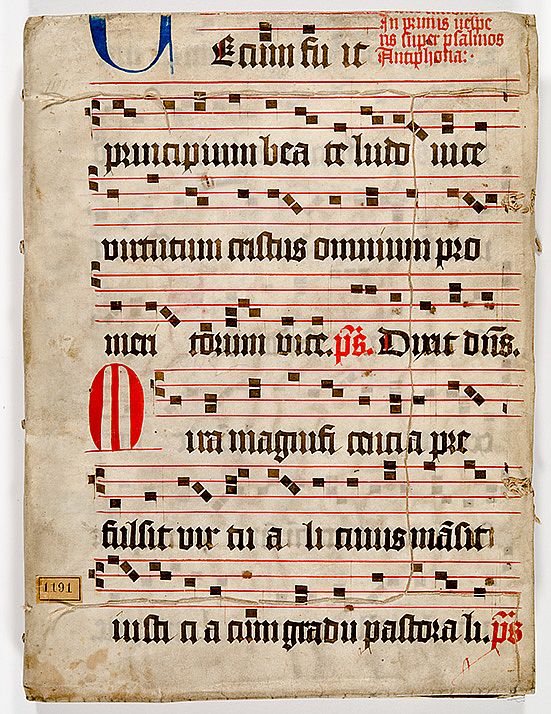 In primis uespe
ris super psalmos
Antiphona:
TEcum fu it
principium bea te ludo uice
virtutum cristus omnium pro
meri torum vice. ps. Dixit dn̄s.
Mira magnifi cenci a pre
fulsit vir tu a li cuius māsit
iusti ci a cum gradu pastora li. ps
1191